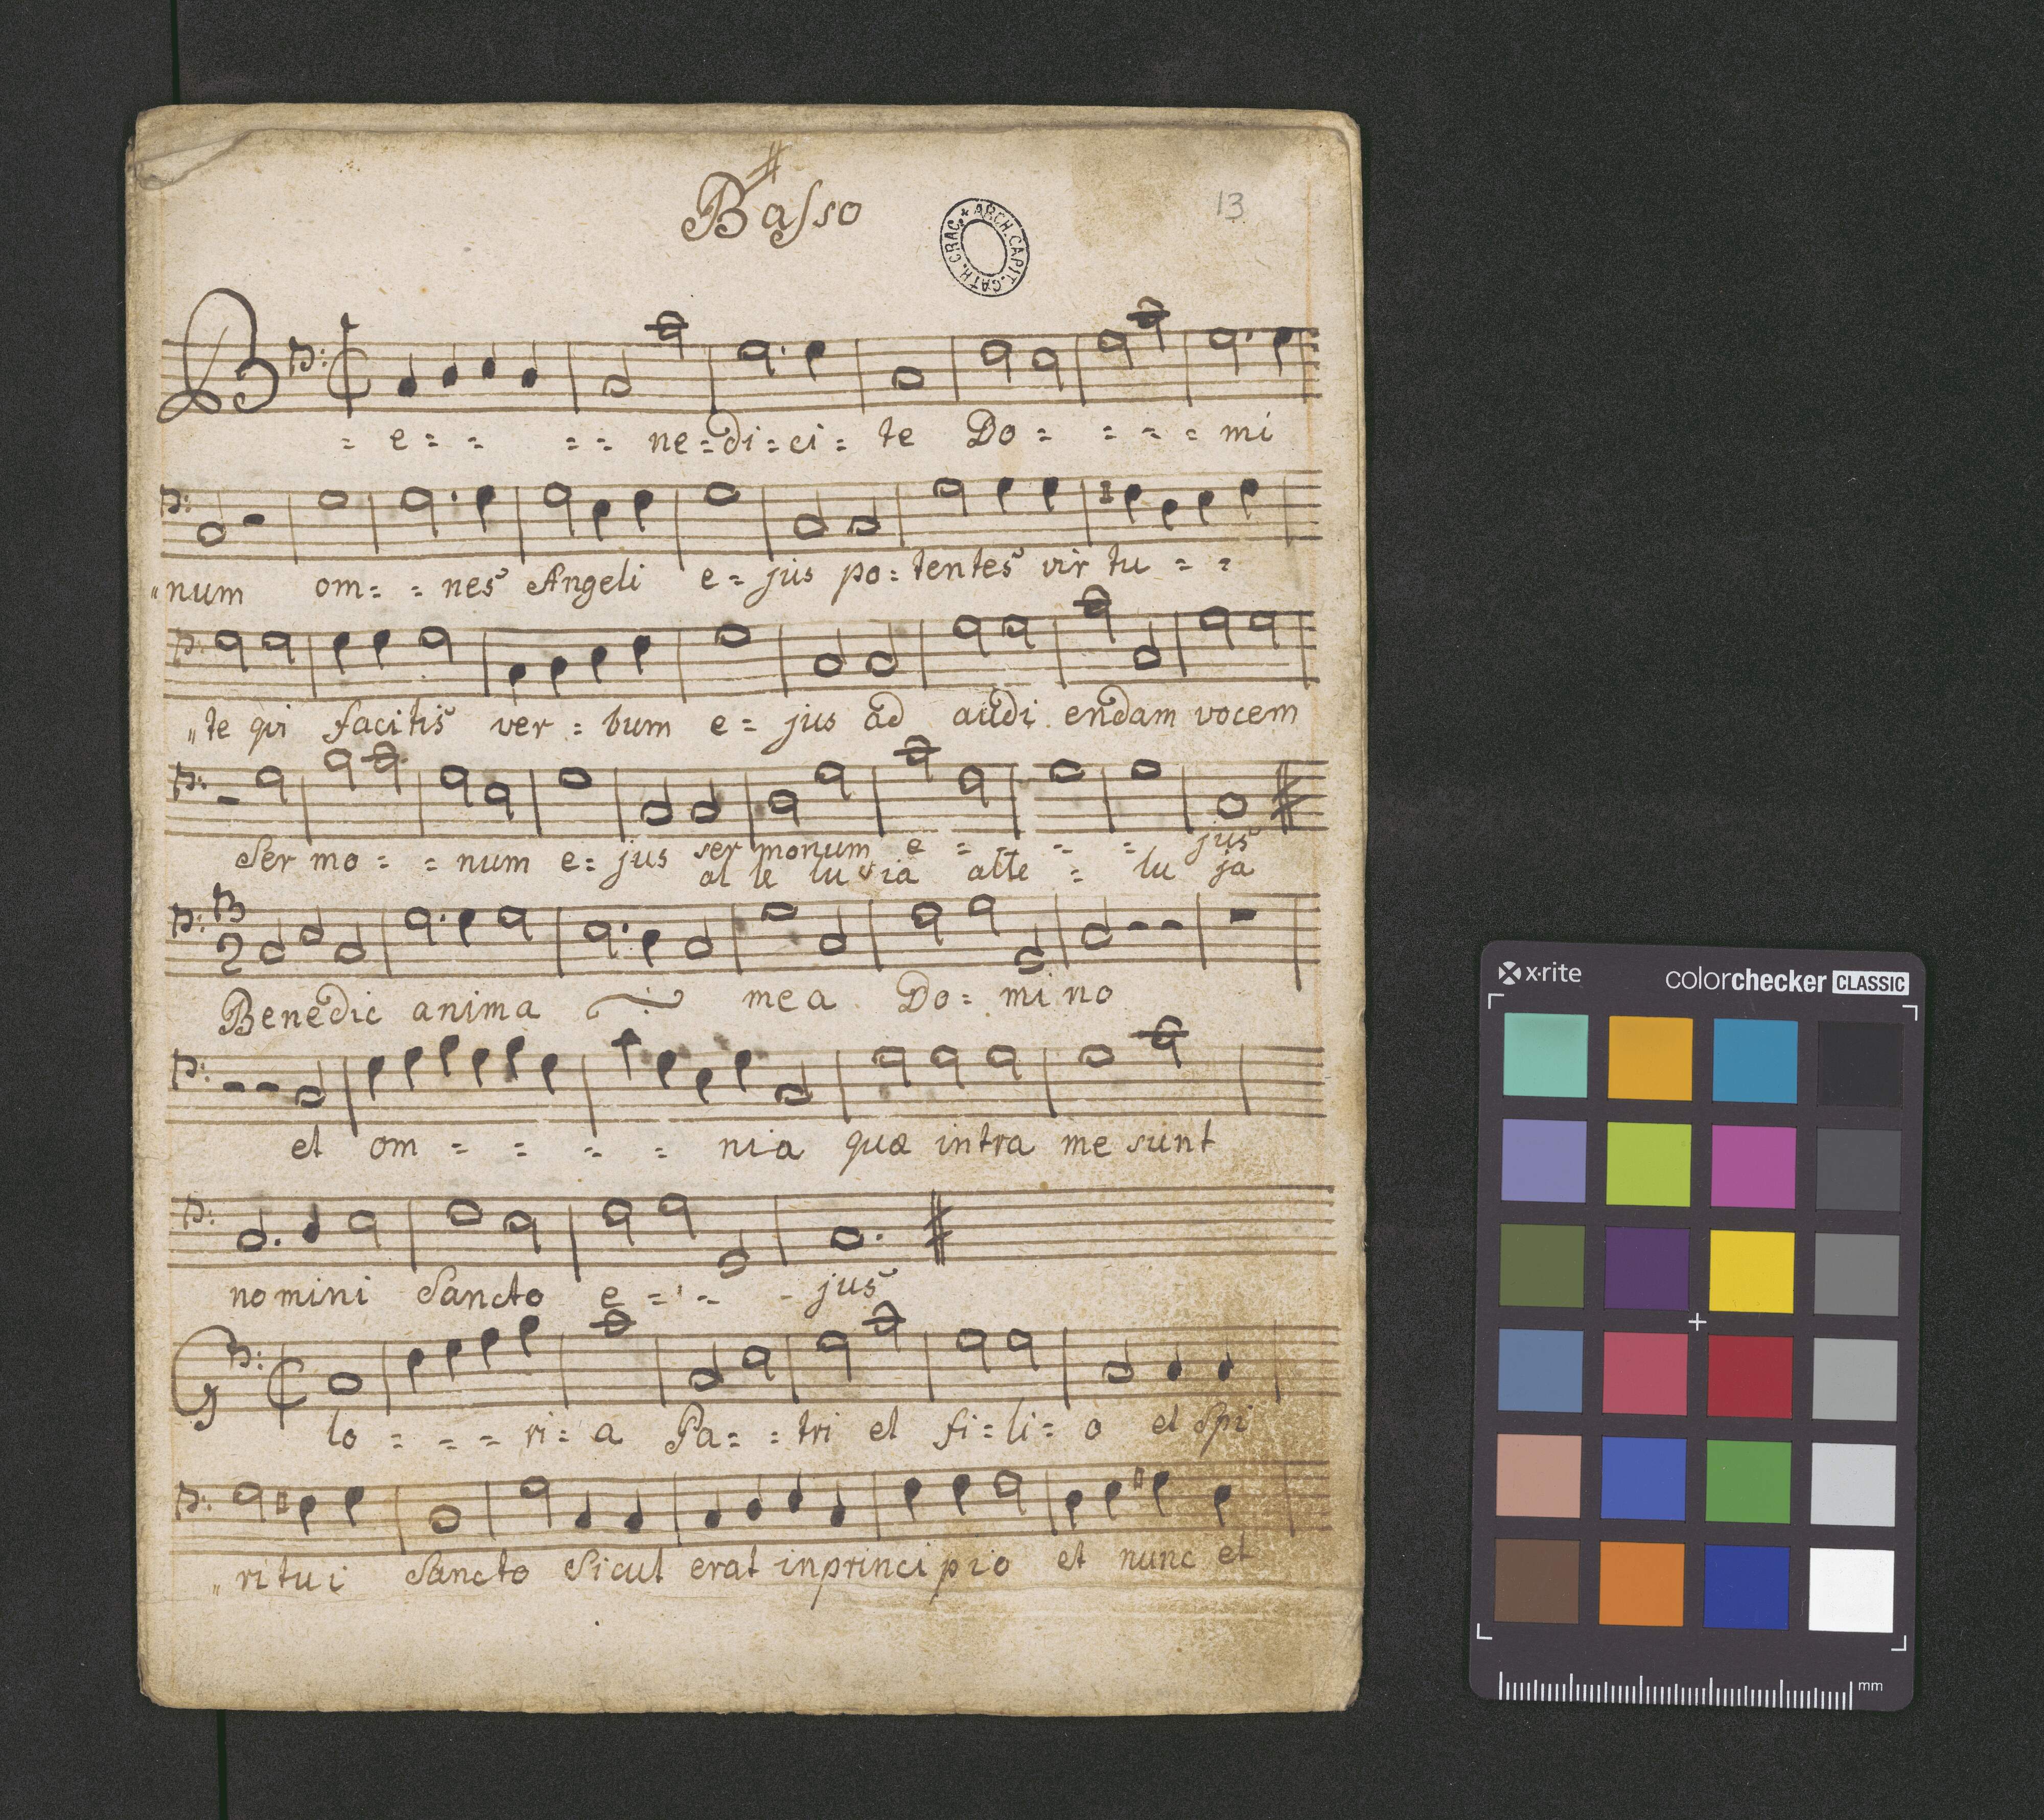 Basso
13
ARCH. CAPIT. CATH. CRAC.
B = e = = = = ne = di = ci = te Do = = = = mi
"num om = = nes Angeli e = jus po = tentes vir tu = =
"te qui facitis ver = bum e = jus ad audi endam vocem
Ser mo = = num e = jus ser monum e = = = = jus
al le lu ia alle = lu ja
3
2
Benedic anima mea Do = mi no
et om = = = = nia quæ intra me sunt
no mini Sancto e = = - jus
G lo = = = ri = a Pa = = tri et fi = li = o et Spi
"ri tu i Sancto Sicut erat inprinci pio et nunc et
x·rite
colorchecker CLASSIC
mm